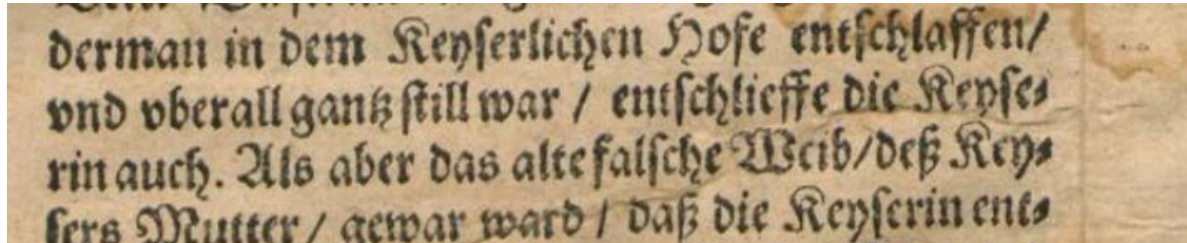 derman in dem Keyserlichen Hofe entschlaffen/
vnd vberall gantz still war / entschlieffe die Keyse⸗
rin auch. Als aber das alte falsche Weib/deß Key⸗
sers Mutter / gewar ward / daß die Keyserin ent⸗